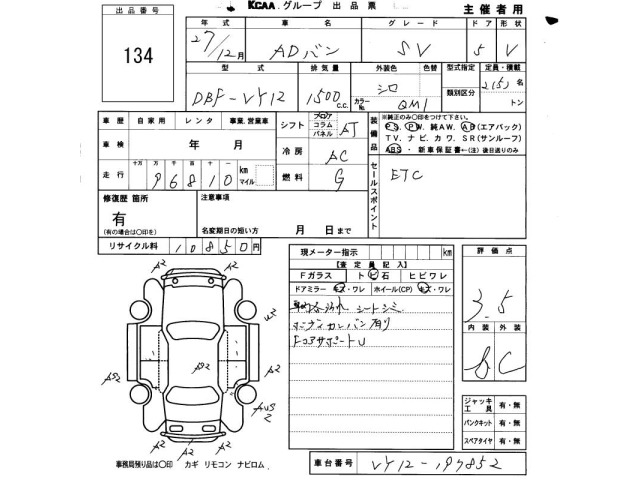 出品番号
134
KCAA グループ 出品票
主催者用
年式 車名 グレード ドア 形状
27/12月 ADバン SV 5 V
型式 排気量 外装色 色替 型式指定 定員・積載
DBF-VY12 1500 c.c. シロ カラーNo. QM1 類別区分 2(5)名 トン
車歴 自家用 レンタ 事業、営業車
車検 年 月
走行 十万 万 千 百 十 一 km マイル
96810
シフト フロア コラム パネル AT
冷房 AC
燃料 G
装備品
※純正のみ○印をつけて下さい。
PS, PW, 純AW, AB(エアバック)
TV, ナビ, カワ, SR(サンルーフ)
ABS ・新車保証書←(注)後日送りのみ
セールスポイント
ETC
修復歴 箇所
有
(有の場合は○印を)
注意事項
名変期日の短い方 月 日まで
リサイクル料 10850円
現メーター指示 km
【査定員記入】
Fガラス トビ石 ヒビワレ
ドアミラー キズ・ワレ ホイール(CP) キズ・ワレ
シートシミ
ボディカンバン有り
FコアサポートU
評価点
3.5
内装 外装
C
ジャッキ 工具 有・無
パンクキット 有・無
スペアタイヤ 有・無
A2
A2
A2
U2
AS2
A2
A2
A2
A2
A2
事務局預り品は○印 カギ リモコン ナビロム
車台番号 VY12-197852